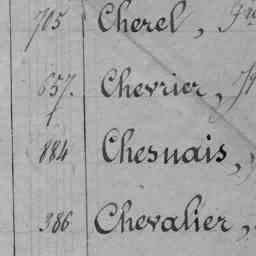 705 Cherel,
657. Chevrier,
884 Chesnais,
386 Chevalier,